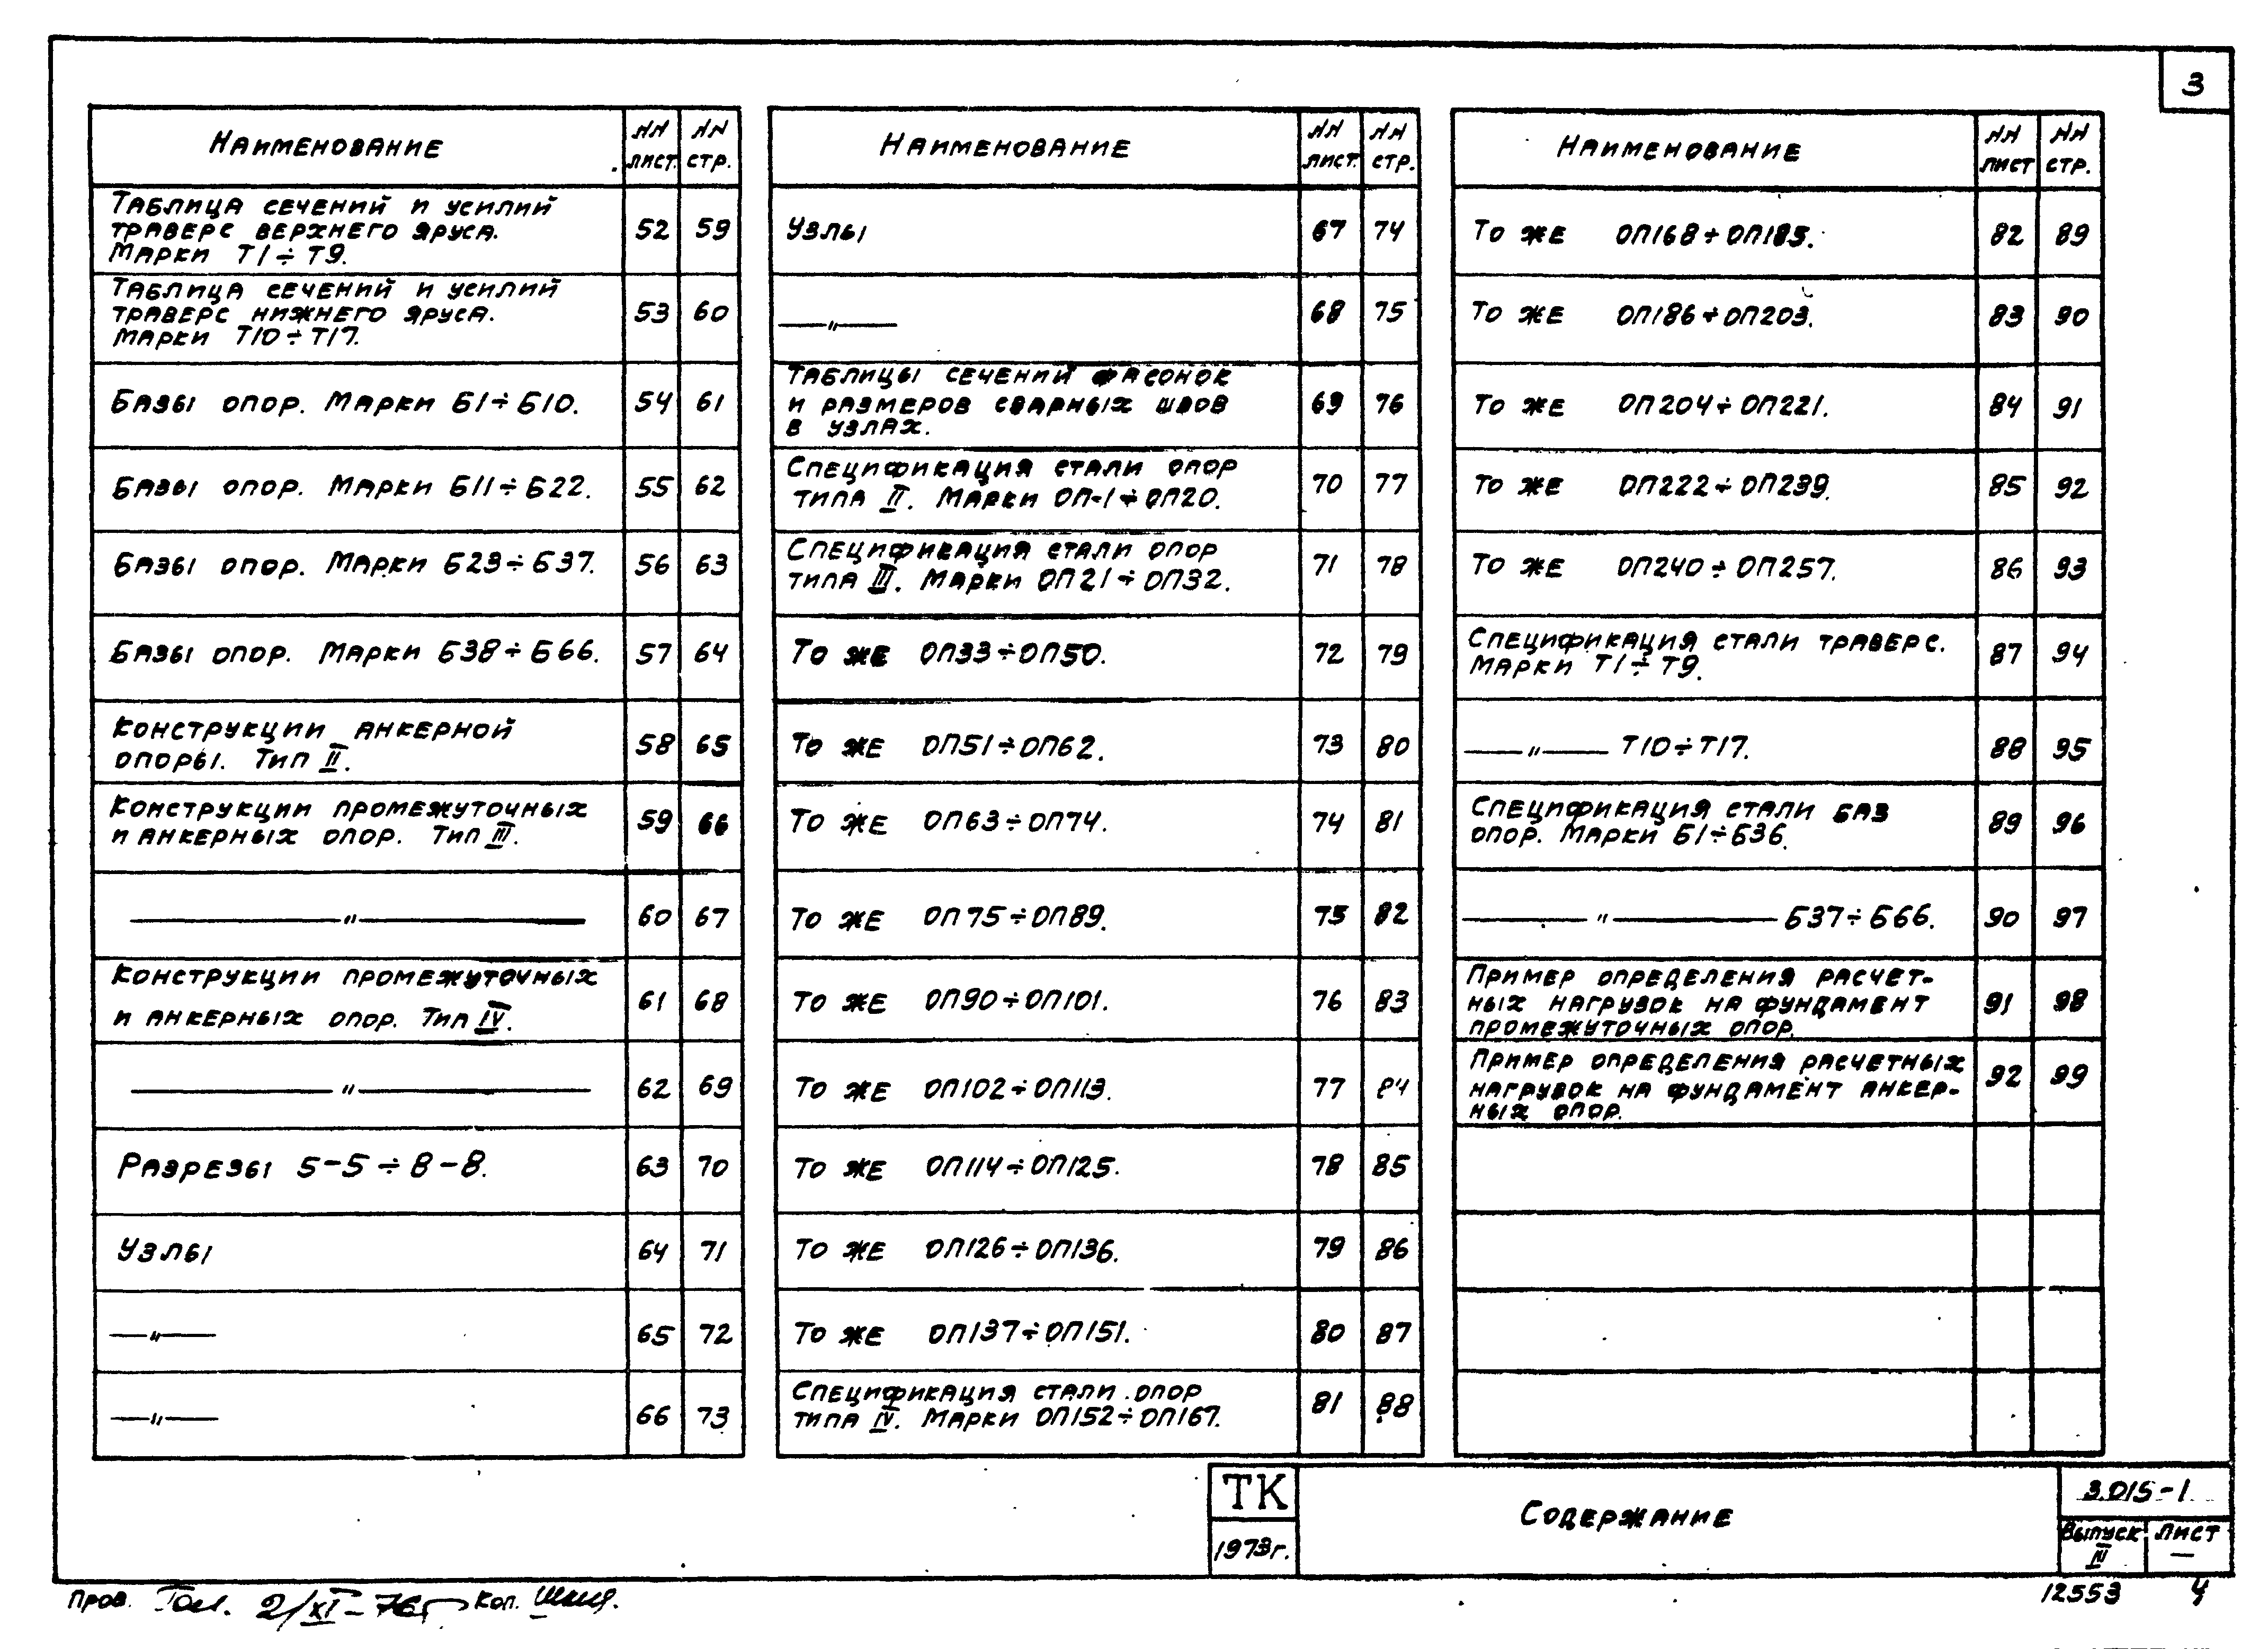 3
Наименование
NN лист.
NN стр.
Таблица сечений и усилий
траверс верхнего яруса.
Марки Т1÷Т9.
52 59
Таблица сечений и усилий
траверс нижнего яруса.
Марки Т10÷Т17.
53 60
Базы опор. Марки Б1÷Б10. 54 61
Базы опор. Марки Б11÷Б22. 55 62
Базы опор. Марки Б23÷Б37. 56 63
Базы опор. Марки Б38÷Б66. 57 64
Конструкции анкерной
опоры. Тип II.
58 65
Конструкции промежуточных
и анкерных опор. Тип III.
59 66
—"— 60 67
Конструкции промежуточных
и анкерных опор. Тип IV.
61 68
—"— 62 69
Разрезы 5-5÷8-8. 63 70
Узлы 64 71
—"— 65 72
—"— 66 73
Наименование
NN лист.
NN стр.
Узлы 67 74
—"— 68 75
Таблицы сечений фасонок
и размеров сварных швов
в узлах.
69 76
Спецификация стали опор
типа II. Марки ОП-1÷ОП20.
70 77
Спецификация стали опор
типа III. Марки ОП21÷ОП32.
71 78
То же ОП33÷ОП50. 72 79
То же ОП51÷ОП62. 73 80
То же ОП63÷ОП74. 74 81
То же ОП75÷ОП89. 75 82
То же ОП90÷ОП101. 76 83
То же ОП102÷ОП113. 77 84
То же ОП114÷ОП125. 78 85
То же ОП126÷ОП136. 79 86
То же ОП137÷ОП151. 80 87
Спецификация стали опор
типа IV. Марки ОП152÷ОП167.
81 88
Наименование
NN лист
NN стр.
То же ОП168÷ОП185. 82 89
То же ОП186÷ОП203. 83 90
То же ОП204÷ОП221. 84 91
То же ОП222÷ОП239. 85 92
То же ОП240÷ОП257. 86 93
Спецификация стали траверс.
Марки Т1÷Т9.
87 94
—"— Т10÷Т17. 88 95
Спецификация стали баз
опор. Марки Б1÷Б36.
89 96
—"— Б37÷Б66. 90 97
Пример определения расчет-
ных нагрузок на фундамент
промежуточных опор.
91 98
Пример определения расчетных
нагрузок на фундамент анкер-
ных опор.
92 99
ТК
1973г.
Содержание
3.015-1
Выпуск
III
Лист
—
Пров. 2/XI-76г Коп.
12553 4